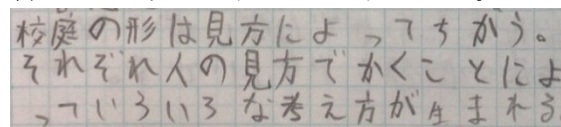 校庭の形は見方によってちがう。
それぞれ人の見方でかくことによ
っていろいろな考え方が生まれる